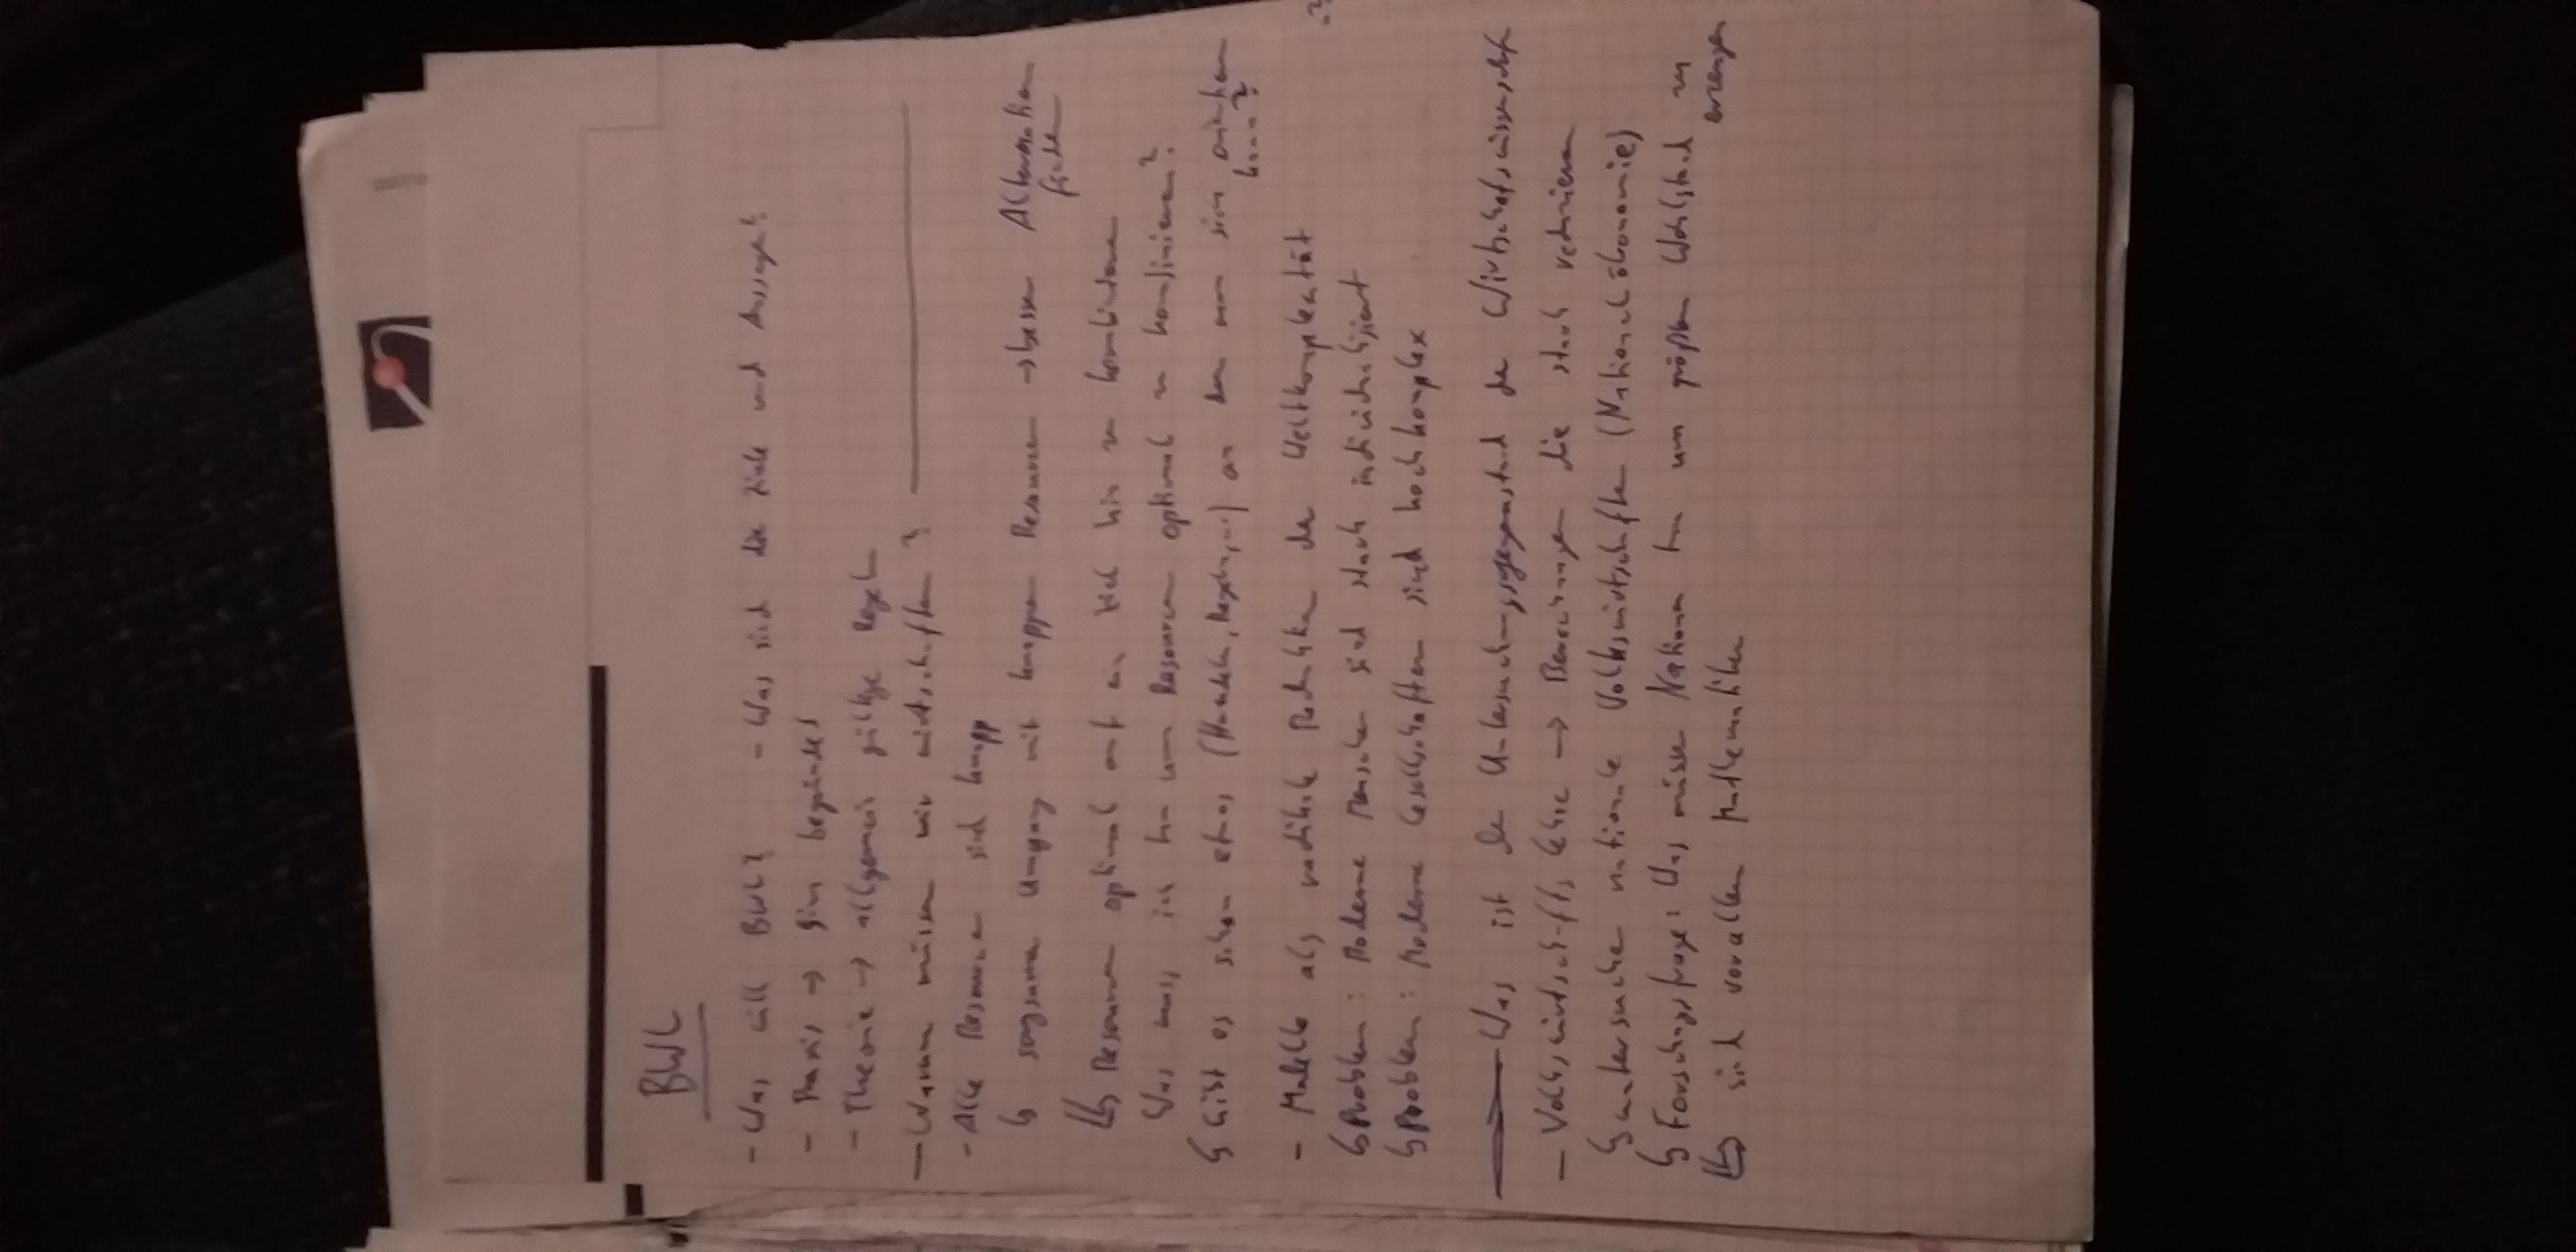 BWL
- Was will BWL? - Was sind die Ziele und Aussagen?
- Praxis → Sinn begründet
- Theorie → allgemein gültige Regeln
- Warum müssen wir wirtschaften?
- Alle Resourcen sind knapp
↳ sorgsamer Umgang mit knappen Resourcen → besser Alternativen
finden
↳ Resourcen optimal auf ein Ziel hin zu kombinieren
Was muss ich tun um Resourcen optimal zu kombinieren?
↳ Gibt es schon etwas (Handeln, Regeln, ...) an dem man sich orientieren
kann?
- Modelle als radikale Reduktion der Weltkomplexität
↳ Problem: Moderne Menschen sind stark individualisiert
↳ Problem: Moderne Gesellschaften sind hochkomplex
Was ist der Untersuchungsgegenstand der Wirtschaftswissenschaften
- Volkswirtschaftslehre → Berechnungen die stark reduzieren
↳ untersuchen nationale Volkswirtschaften (Nationalökonomie)
↳ Forschungsfrage: Was müssen Nationen tun um größten Wohlstand zu
erzeugen
↳ sind vorallem Mathematiker